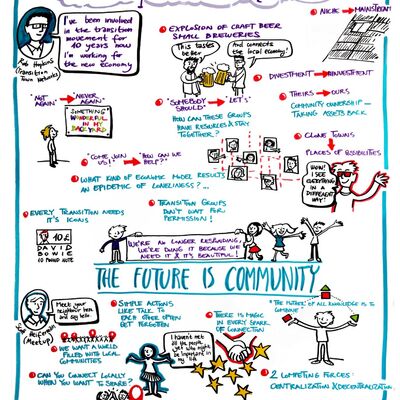 I've been involved
in the transition
movement for
10 years now
I'm working for
the new economy
Rob Hopkins
Transition
Town Networks
EXPLOSION OF CRAFT BEER
SMALL BREWERIES
This tastes
better
And connects
the local economy!
NICHE → MAINSTREAM
DIVESTMENT → REINVESTMENT
THEIRS → OURS
COMMUNITY OWNERSHIP —
TAKING ASSETS BACK
"NOT
AGAIN"
→ "NEVER
AGAIN"
SOMETHING
WONDERFUL
IN MY
BACK YARD
"SOMEBODY
SHOULD"
→ "LET'S"
HOW CAN THESE GROUPS
HAVE RESOURCES & STAY
TOGETHER?
CLONE TOWNS
PLACES OF POSSIBILITIES
WOW! I
SEE
EVERYTHING
IN A
DIFFERENT
WAY!
"COME JOIN
US!"
→ "HOW CAN WE
HELP?"
WHAT KIND OF ECONOMIC MODEL RESULTS
AN EPIDEMIC OF LONELINESS?...
TRANSITION GROUPS
DON'T WAIT FOR
PERMISSION!
EVERY TRANSITION NEEDS
IT'S ICONS
10£
DAVID
BOWIE
10 POUND NOTE
WE'RE NO LONGER RESPONDING,
WE'RE DOING IT BECAUSE WE
NEED IT & IT'S BEAUTIFUL!
THE FUTURE IS COMMUNITY
Meet your
neighbour here
and say hello
(Meetup)
SIMPLE ACTIONS
LIKE TALK TO
EACH OTHER OFTEN
GET FORGOTTEN
THERE IS MAGIC
IN EVERY SPARK
OF CONNECTION
"THE FUTURE OF ALL KNOWLEDGE IS TO
COMBINE"
WE WANT A WORLD
FILLED WITH LOCAL
COMMUNITIES
I haven't met
all the people
yet who might
be important in
my life
CAN YOU CONNECT LOCALLY
WHEN YOU WANT TO SHARE?
2 COMPETING FORCES:
CENTRALIZATION & DECENTRALIZATION